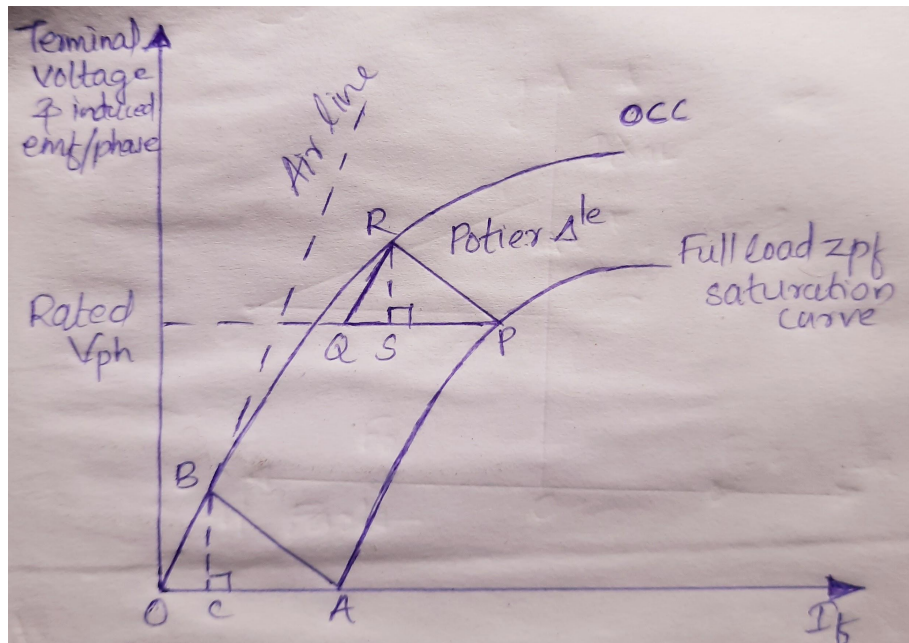 Terminal
voltage
& induced
emf/phase
Air line
OCC
R
Potier Δle
Full load zpf
saturation
curve
Rated
Vph
Q S P
B
O C A If